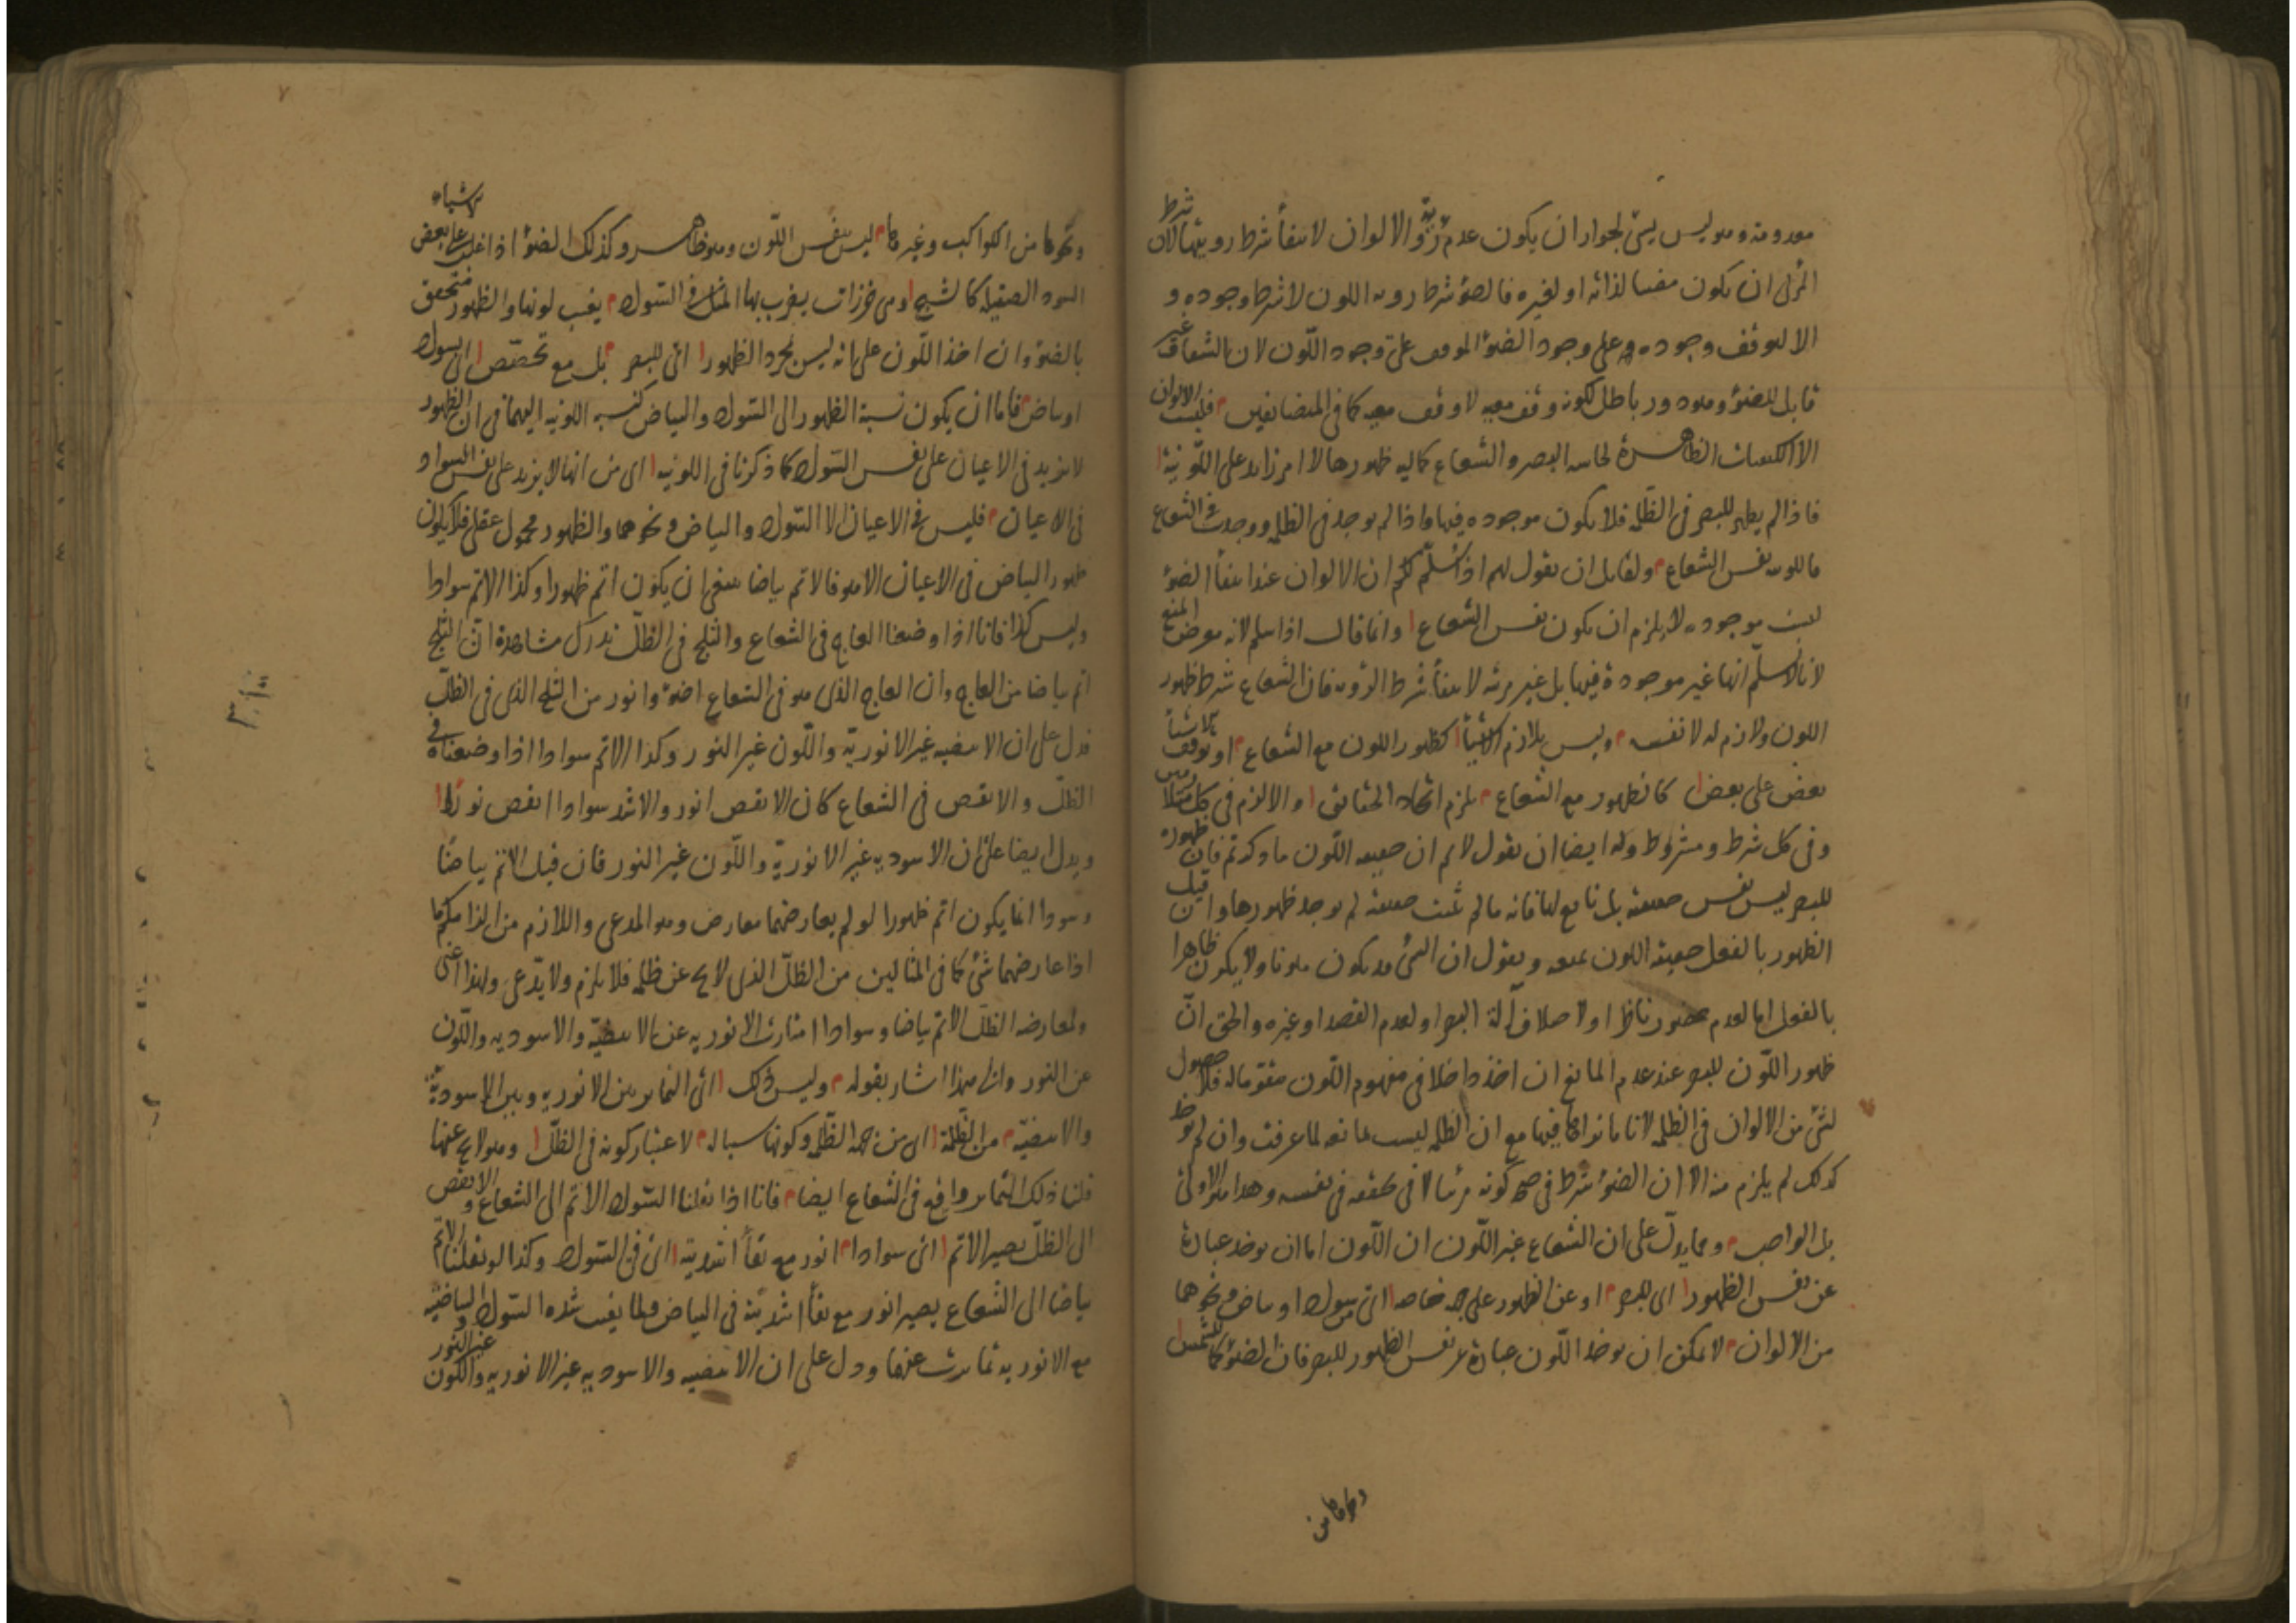 معدومة وهو ليس بشئ لجواز ان يكون عدم رؤية الالوان لانتفأ شرط رويتها لان شرط
المرئى ان يكون مضيا لذاته او لغيره فالضؤ شرط روية اللون لا شرط وجوده و
الا لتوقف وجوده على وجود الضؤ الموقف على وجود اللون لان الشفاف غير
قابل للضؤ وهو دور باطل لكونه وقف معية لا وقف معية كما فى المتضايفين فليست الالوان
الا الكيفيات الظاهرة لحاسة البصر والشعاع كمالية ظهورها لا امر زايد على اللونية
فاذا لم يظهر للبصر فى الظلمة فلا يكون موجودة فيها واذا لم يوجد فى الظلمة ووجدت فى الشعاع
فاللون نفس الشعاع ولقايل ان يقول لهم اذا سلم لكم ان الالوان عند انتفأ الضؤ
ليست موجودة لا يلزم ان يكون نفس الشعاع وانما قال اذا سلم لانه موضع المنع
لانا لا نسلم انها غير موجودة فيها بل غير مرئية لانتفأ شرط الرؤية فان الشعاع شرط ظهور
اللون ولازم له لا نفسه وليس بلازم الاشيأ كظهور اللون مع الشعاع او توقف
بعض على بعض كالظهور مع الشعاع يلزم اتحاد الحقائق والا لزم فى كل متلازمين
وفى كل شرط ومشروط وله ايضا ان يقول لا نم ان حقيقة اللون ما ذكرتم فان ظهوره
للبصر ليس نفس حقيقته بل تابع لها فانه ما لم تثبت حقيقته لم يوجد ظهورها وان قيل
الظهور بالفعل حقيقة اللون نمنعه ونقول ان الشئ قد يكون ملونا ولا يكون ظاهرا
بالفعل اما لعدم حضور ناظر او لاختلاف آلة البصر او لعدم القصد او غيره والحق انّ
ظهور اللون للبصر عند عدم المانع ان اخذ داخلا فى مفهوم اللون مقوما له فلا حصول
لشئ من الالوان فى الظلمة لانا ما نراها فيها مع ان الظلمة ليست مانعة لما عرفت وان لم يوخذ
كذلك لم يلزم منه الا ان الضؤ شرط فى صحة كونه مرئيا لا فى تحققه فى نفسه وهذا هو الاولى
بل الواجب ومما يدل على ان الشعاع غير اللون ان اللون اما ان يوخذ عبارة
عن نفس الظهور اى للبصر او عن الظهور على جهة خاصة اى سواد او بياض ونحوهما
من الالوان لا يمكن ان يوخذ اللون عبارة عن نفس الظهور للبصر فان الضؤ كما للشمس
ونحوها من
ونحوها من الكواكب وغيرها ليس بنفس اللون وهو ظاهر وكذلك الضؤ اذا غلب على بعض الاشياء
السود الصقيلة كالشبح وهى خرزات يضرب بها المثل فى السواد يغيب لونها والظهور متحقق
بالضؤ وان اخذ اللون على انه ليس مجرد الظهور اى للبصر بل مع تخصّص اى بسواد
او بياض فاما ان يكون نسبة الظهور الى السواد والبياض كنسبة اللونية اليهما فى ان الظهور
لا يزيد فى الاعيان على نفس السواد كما ذكرنا فى اللونية اى من انها لا يزيد على نفس السواد
فى الاعيان فليس فى الاعيان الا السواد والبياض ونحوهما والظهور محمول عقلى فلا يكون
ظهور البياض فى الاعيان الا هو فالاتم بياضا ينبغى ان يكون اتم ظهورا وكذا الاتم سوادا
وليس كذا فانا اذا وضعنا العاج فى الشعاع والثلج فى الظلّ ندرك مشاهدة ان الثلج
اتم بياضا من العاج وان العاج الذى هو فى الشعاع اضؤ وانور من الثلج الذى فى الظلّ
فدل على ان الابيضية غير الانوريّة واللون غير النور وكذا الاتم سوادا اذا وضعناه فى
الظلّ والانقص فى الشعاع كان الانقص انور والاشد سوادا انقص نورًا
ويدل ايضا على ان الاسودية غير الانوريّة واللون غير النور فان قيل الاتم بياضًا
وسوادا انما يكون اتم ظهورا لو لم يعارضهما معارض وهو المدعى واللازم من
اذا عارضهما شئ كما فى المثالين من الظلّ الذى لا يخ عن ظلمة فلا يلزم ولا يدّعى ولهذا اعنى
ولمعارضة الظلّ الاتم بياضا وسوادا امتازت الانورية عن الابيضيّة والاسودية واللون
عن النور والى هذا اشار بقوله وليس ذلك اى التمايز بين الانورية وبين الاسودية
والابيضيّة من الظلمة اى من جهة الظلمة وكونها سببا له لاعتبار كونه فى الظلّ وهو لا يخ عنها
فلنا ذلك التمايز واقع فى الشعاع ايضا فانا اذا نقلنا السواد الاتم الى الشعاع والانقص
الى الظلّ يصير الاتم اى سوادا انور مع بقأ اشديّته اى فى السواد وكذا لو نقلنا الاتم
بياضا الى الشعاع يصير انور مع بقأ اشديّته فى البياض ولما بقيت شدة السواد والبياضية
مع الانورية تمايزت عنهما ودل على ان الابيضية والاسودية غير الانورية واللون غير النور